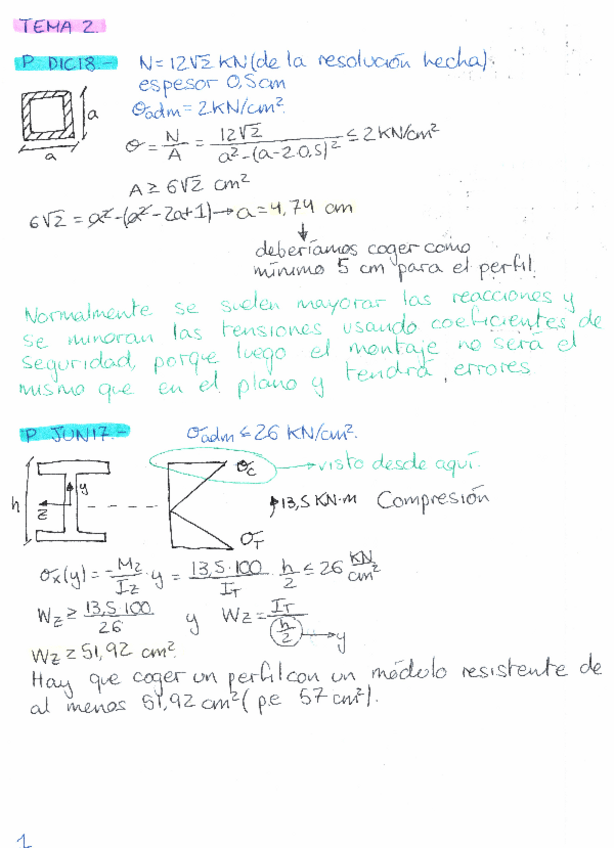 TEMA 2.
P DIC18.- N = 12√2 KN (de la resolución hecha).
espesor 0,5cm
σadm = 2 KN/cm².
a
a
σ = N/A = 12√2 / (a² - (a - 2·0,5)²) ≤ 2 KN/cm²
A ≥ 6√2 cm²
6√2 = a² - (a² - 2a + 1) → a = 4,74 cm
↓
deberíamos coger como
mínimo 5 cm para el perfil.
Normalmente se suelen mayorar las reacciones y
se minoran las tensiones usando coeficientes de
seguridad, porque luego el montaje no será el
mismo que en el plano y tendrá errores
P JUN17.- σadm ≤ 26 KN/cm².
σc → visto desde aquí.
h y z 13,5 KN·m Compresión
σT
σx(y) = -Mz/Iz · y = 13,5·100/IT · h/2 ≤ 26 KN/cm²
Wz ≥ 13,5·100/26 y Wz = IT/(h/2) → y
Wz ≥ 51,92 cm².
Hay que coger un perfil con un módulo resistente de
al menos 51,92 cm² (p.e 57 cm²).
1